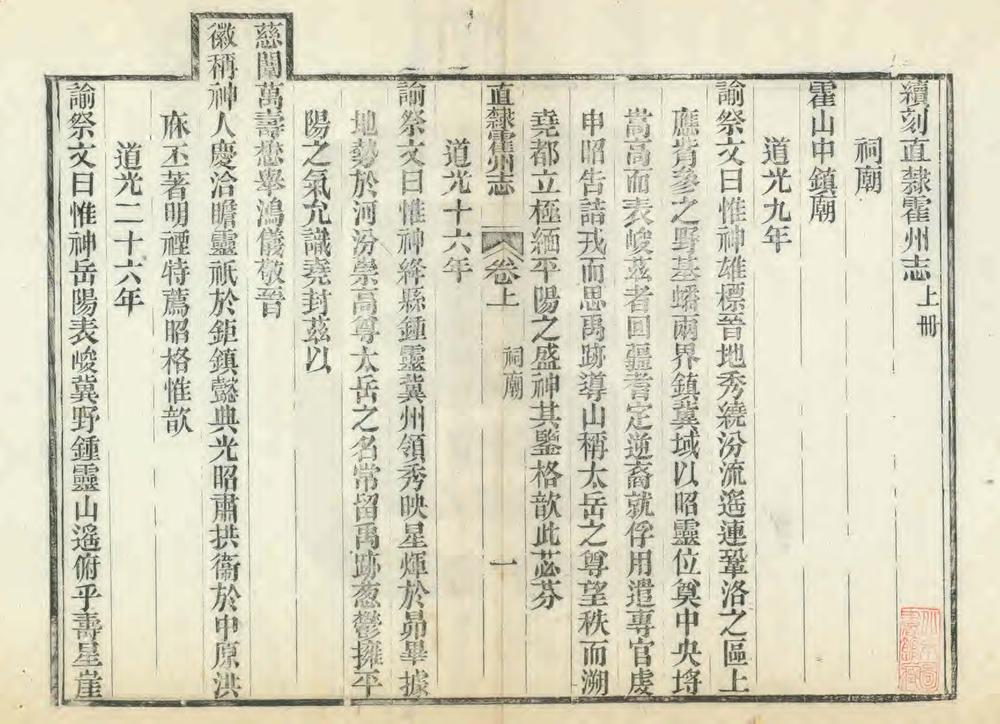 續刻直隸霍州志上冊
祠廟
霍山中鎮廟
道光九年
諭祭文曰惟神雄標晉地秀繞汾流遙連鞏洛之區上
應觜參之野基蟠兩界鎮冀域以昭靈位奠中央埒
嵩高而表峻茲者回疆耆定逆裔就俘用遣專官虔
申昭告詰戎而思禹跡導山稱太岳之尊望秩而溯
堯都立極緬平陽之盛神其鑒格歆此苾芬
直隸霍州志 卷上 祠廟 一
道光十六年
諭祭文曰惟神絳縣鍾靈冀州領秀映星煇於昴畢據
地勢於河汾崇高尊太岳之名常留禹跡葱鬱擁平
陽之氣允識堯封茲以
慈闈萬壽懋舉鴻儀敬晉
徽稱神人慶洽瞻靈祇於鉅鎮懿典光昭肅拱衞於中原洪
庥丕著明禋特薦昭格惟歆
道光二十六年
諭祭文曰惟神岳陽表峻冀野鍾靈山遙俯乎壽星崖